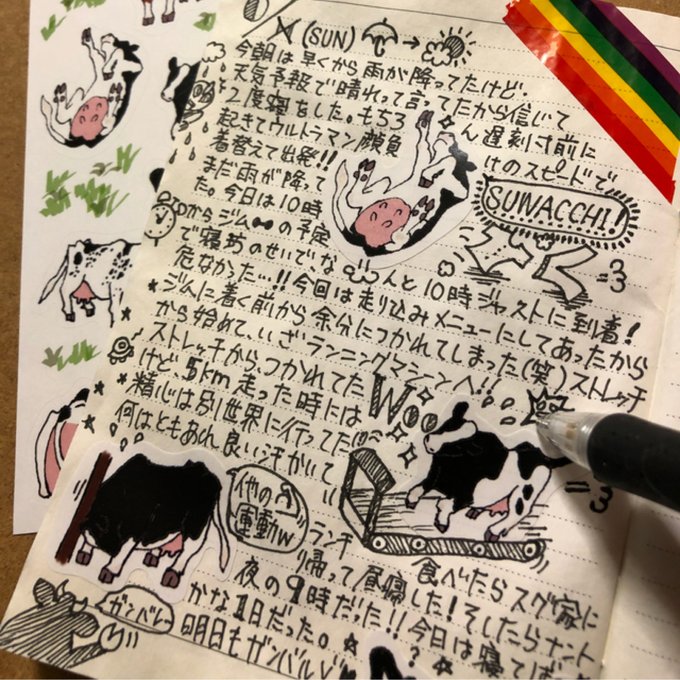 (SUN) →
今朝は早くから雨が降ってたけど、
天気予報で晴れって言ってたから信じて
2度寝をした。もちろん遅刻寸前に
起きてウルトラマン顔負けのスピードで
着替えて出発!!
SUWACCHI!
まだ雨が降って
た。今日は10時
からジムの予定
で寝坊のせいでなんと10時ジャストに到着!
危なかった…!!今回は走り込みメニューにしてあったから
ジムに着く前から余分につかれてしまった(笑)ストレッチ
から始めて、いざランニングマシーンへ!!
ストレッチから、つかれてた
けど、5km走った時には
Woo
精心は別世界に行ってた
何はともあれ良い汗かいて
=3
=3
他の
運動w
ランチ
食べたらスグ家に
帰って昼寝した!そしたらナント
夜の9時だった!!今日は寝てば
かな1日だった。
?
ガンバレ
明日もガンバル